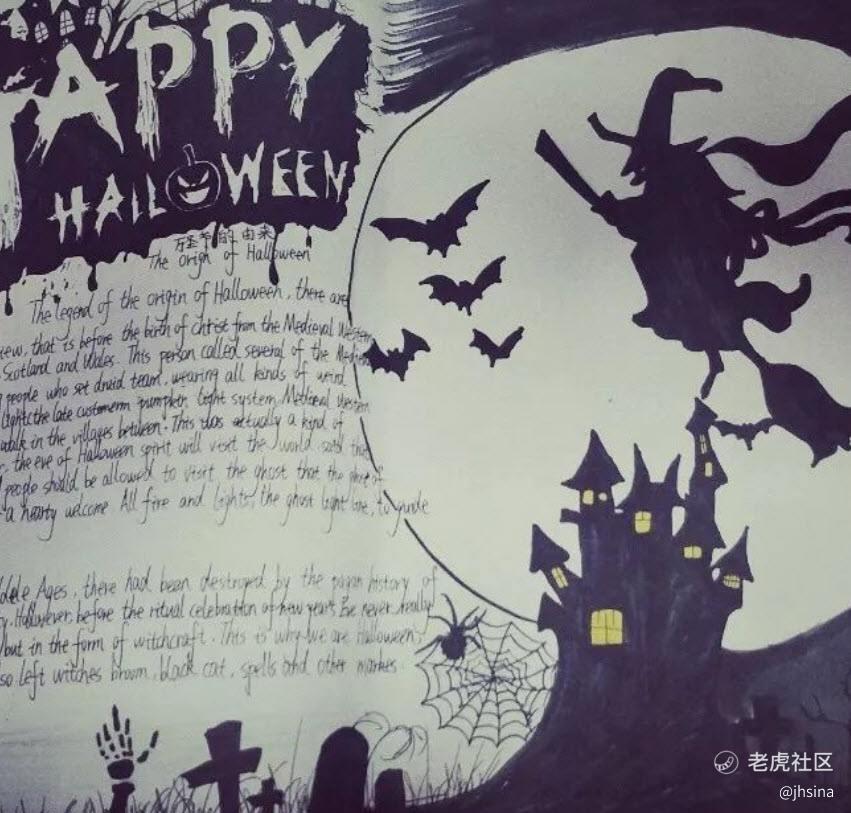 HAPPY
HALLOWEEN
万圣节的由来
The origin of Halloween
The legend of the origin of Halloween, there are
iew, that is before the birth of Christ from the Medieval Western
Scotland and Wales. This person called several of the Medieval
people who set druid team, wearing all kinds of
lights the late pumpkin light system Medieval Western
walk in the villages between. This was actually a kind of
, the eve of Halloween spirit will visit the world. said that
people should be allowed to visit the ghost that the of
a hearty welcome. All fire and lights, the ghost light to guide
ddle Ages, there had been destroyed by the pagan history of
y. Hallowever, before the ritual celebration of new year's Eve never really
but in the form of witchcraft. This is why we are Halloween's
so left witches broom, black cat, spells and other markes.
老虎社区
@jhsina